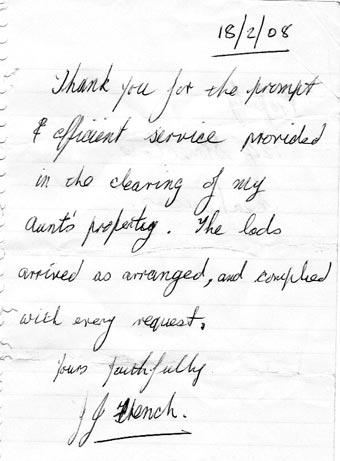 18/2/08
Thank you for the prompt
& efficient service provided
in the clearing of my
aunt's property. The lads
arrived as arranged, and complied
with every request.
Yours faithfully
J J French.